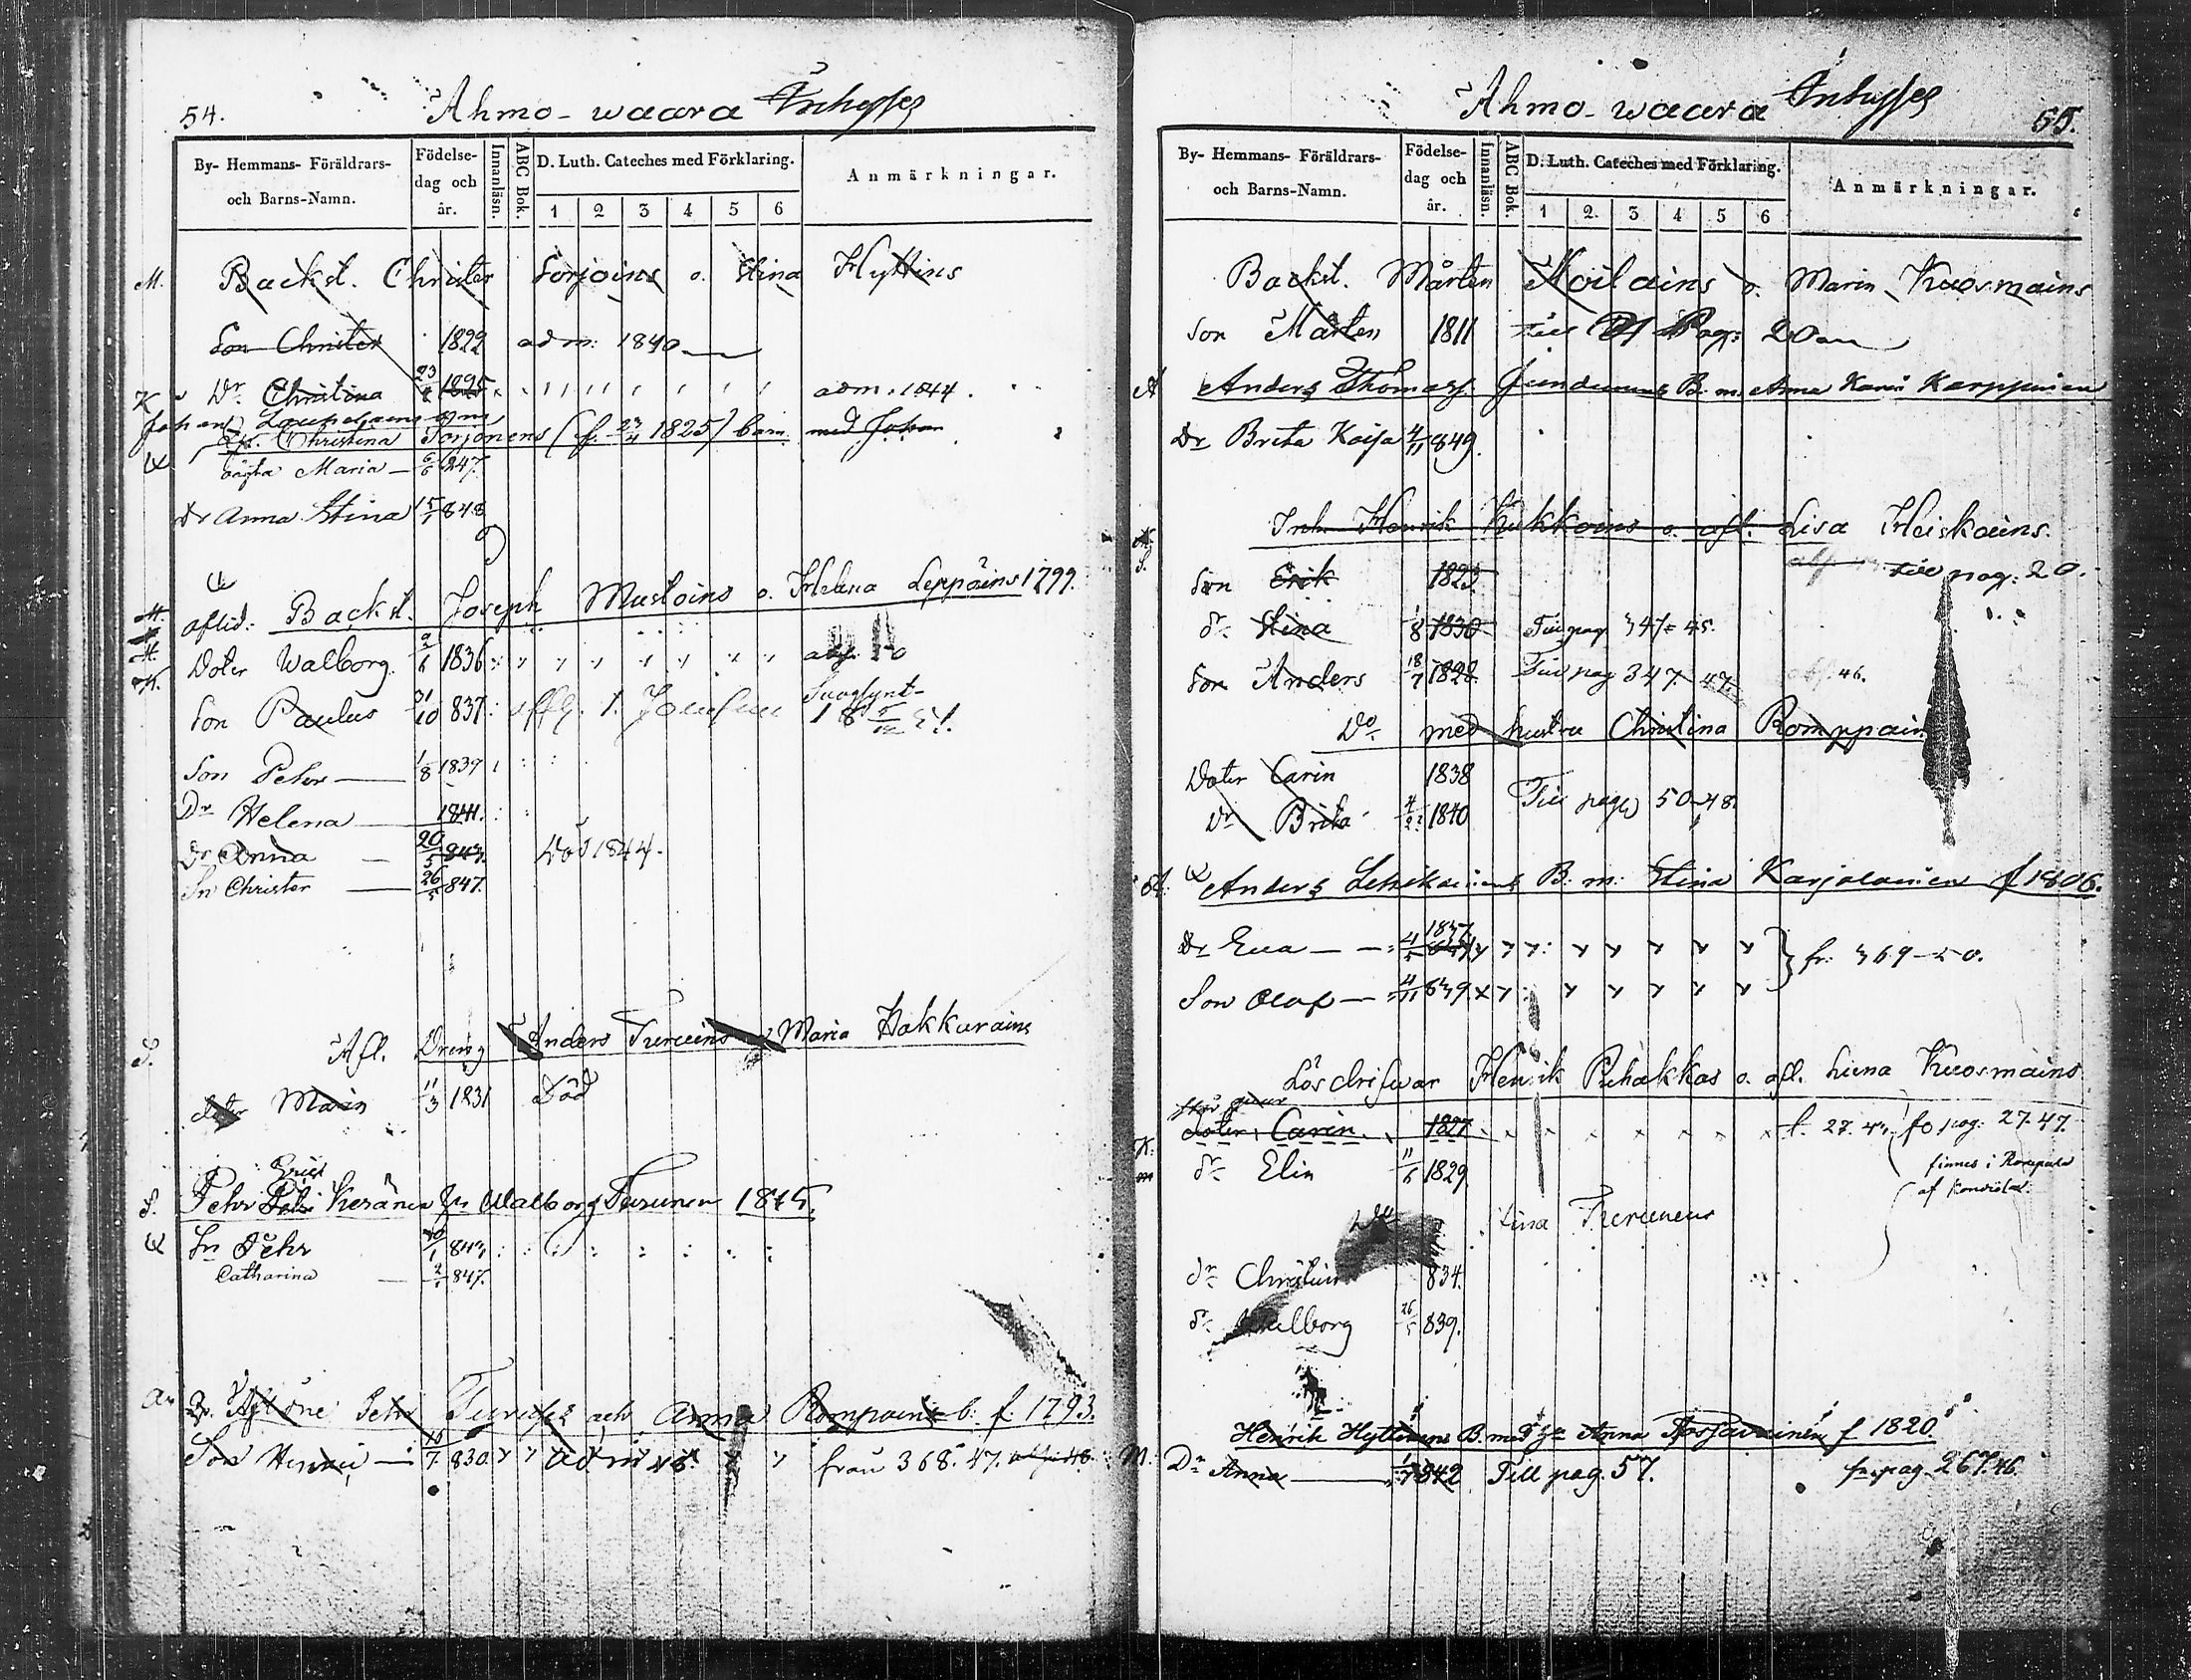 54.
Ahmo-waara Inhyses
By- Hemmans- Föräldrars- och Barns-Namn.
Födelse- dag och år.
Innanläsn.
ABC Bok.
D. Luth. Cateches med Förklaring.
1 2 3 4 5 6
Anmärkningar.
M. Backst. Christer Torjoins o. Stina Hyttins
Son Christer 1822 adm: 1840
Dr Christina 23/4 1825 adm. 1844.
Johan
Christina Torjonens (f. 23/4 1825) barn med Johan
oägta Maria 6/6 847.
Dr Anna Stina 15/1 848
aflid: Backst. Joseph Mustoins o. Helena Leppäins 1799.
Doter Walborg. 2/6 1836
Son Paulus 31/10 837
Son Pehr 1/8 1839
Dr Helena 1841.
Dr Anna 20/5 843. Död 1844.
Sn Christer 26/5 847.
S. Afl. Dreng Anders Turuins o. Maria Hakkurains
doter Marin 11/3 1831 Död
Erics
S. Pehr Keränen Walborg Turunen 1815.
Sn Pehr 843
Catharina 2/1 847.
Pehr Turuses och Anna Rompains b. f. 1793.
Son Henric 7. 830. adm 48. från 368. 47.
Ahmo-waara Inhyses
55.
By- Hemmans- Föräldrars- och Barns-Namn.
Födelse- dag och år.
Innanläsn.
ABC Bok.
D. Luth. Cateches med Förklaring.
1 2. 3 4 5 6
Anmärkningar.
Backst. Mårten Moilains o. Marin Kuosmains
Son Mårten 1811 Pag: 20
A Anders Thomass. B. m. Anna Karin Karppinen
Dr Brita Kaisa 4/11 849.
Inh. Henrik Kukkoins o. afl. Lisa Heiskains.
Son Erik 1823 till pag: 20.
dr Stina 1/8 1830 Till pag 347 = 45.
Son Anders 18/7 1828 Till pag 347. 47. 46.
Do med hustru Christina Romppain
Doter Carin 1838
Dr Brita 1840 Till page 50-48.
Anders B. m: Stina Karjalainen f 1806.
Dr Eva 1837 fr: 369-50.
Son Olof 4/11 839
Lösdrifwar Henrik Pihakkas o. afl. Liena Kuosmains
doter Carin 1827 f. 27. 47. fo pag. 27.47.
K. dr Elin 11/6 1829
finnes i Rompala
af Konvolut.
Do Stina Turunens
dr Christin 834.
dr Walborg 26/5 839.
Henrik Hyttinens B. med Anna f 1820.
M. Dr Anna 1/7 842 Till pag. 57. fr pag. 267.46.